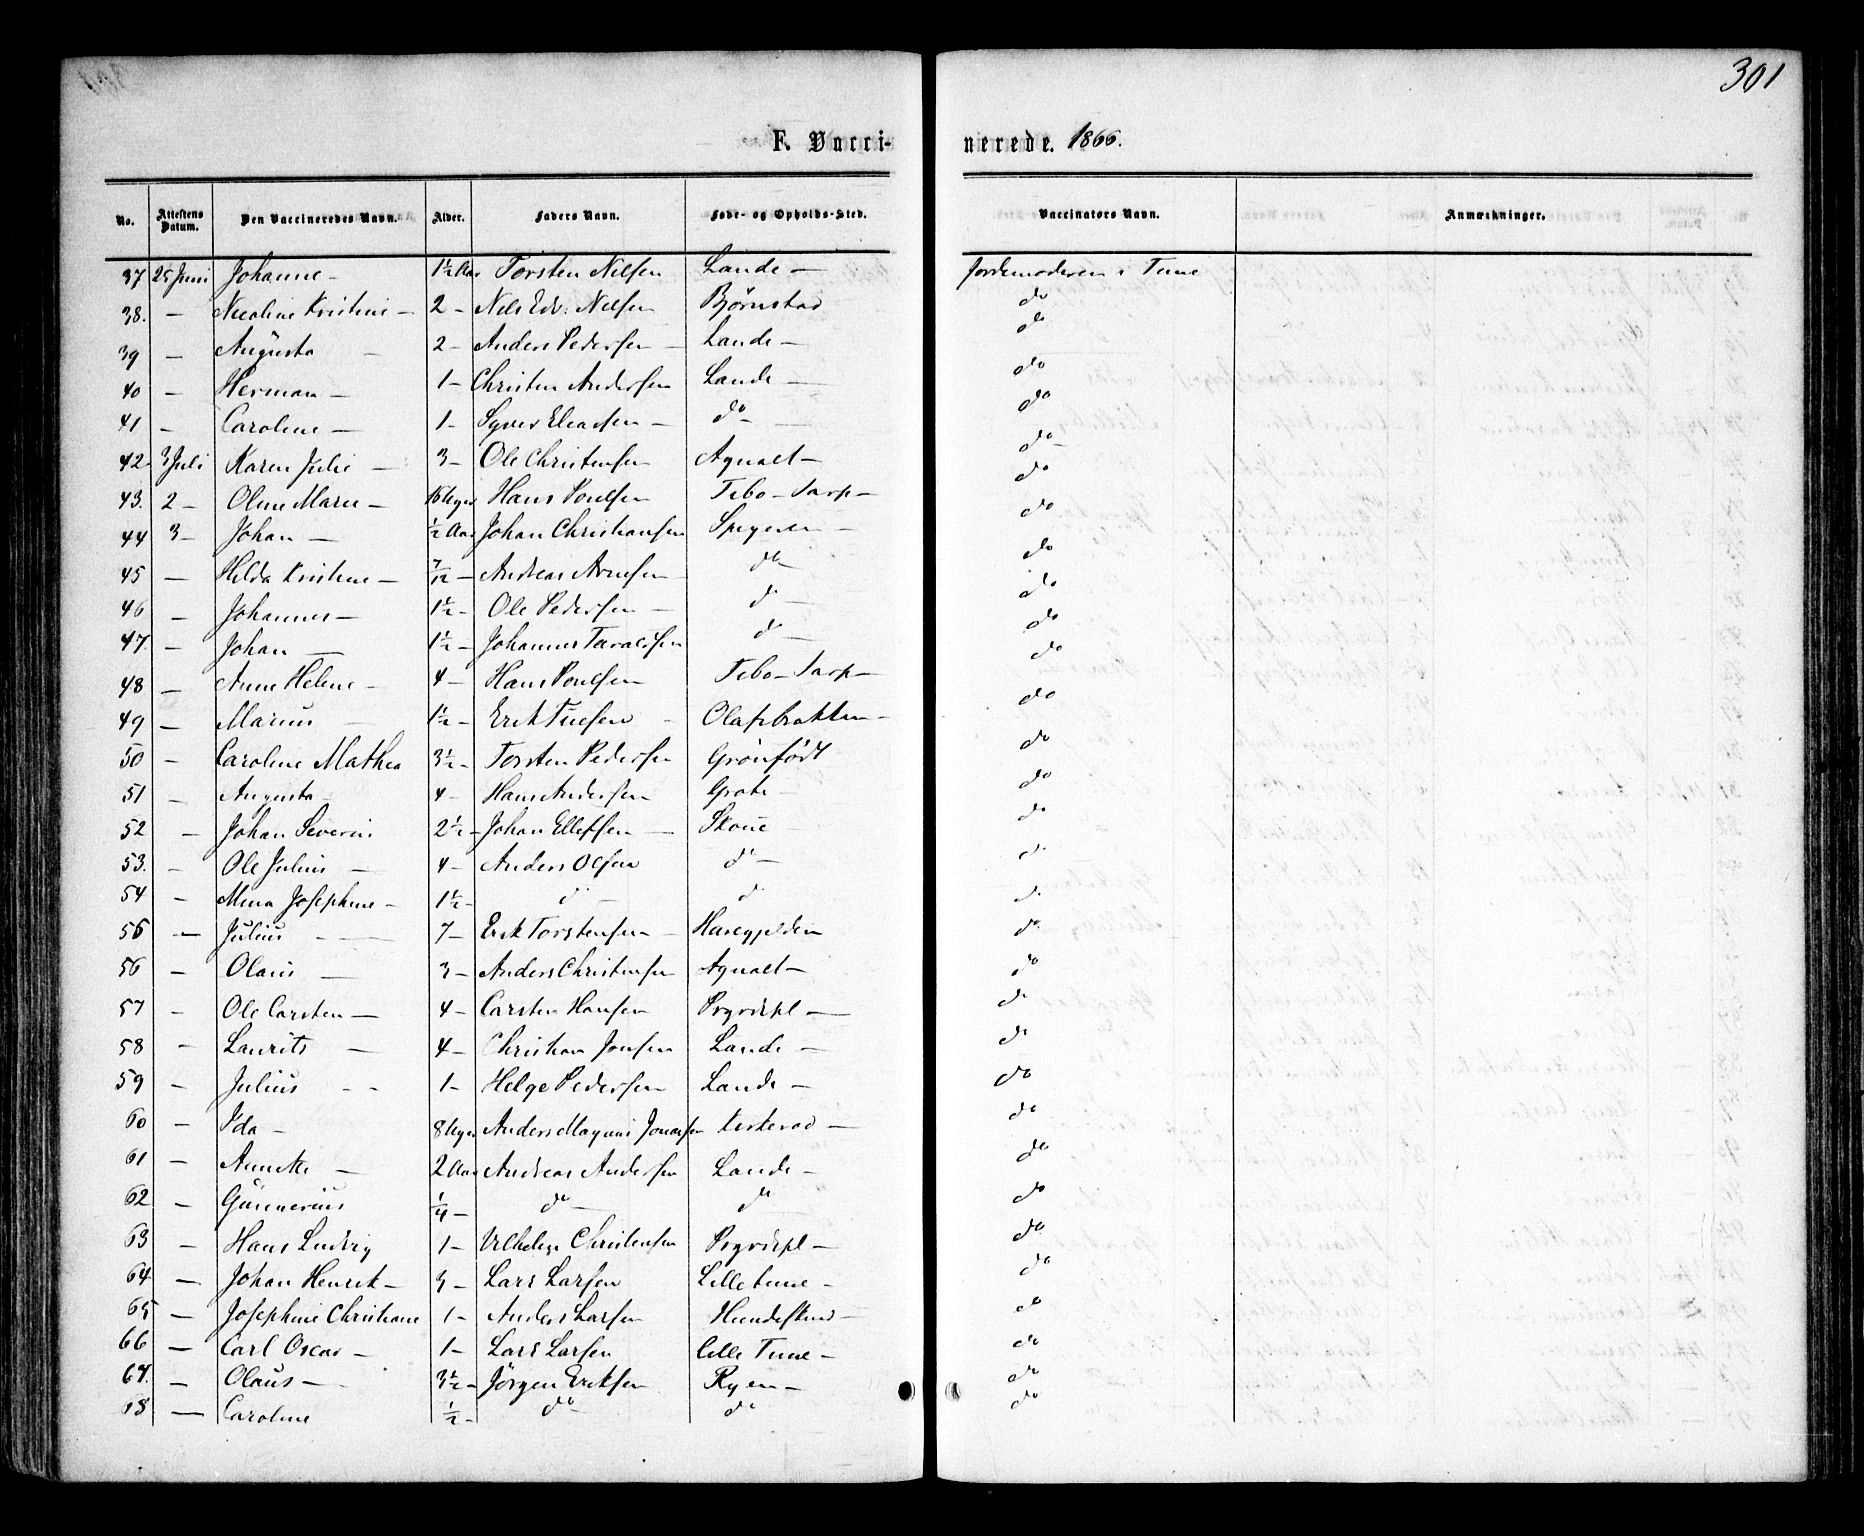 301
F. Vacci- nerede. 1866.
No. Attestens Datum. Den Vaccineredes Navn. Alder. Faders Navn. Føde- og Opholds-Sted. Vaccinators Navn. Anmærkninger.
37 25 Juni Johanne - 1½ Aar Torsten Nilsen Lande - Jordemoderen i Tune
38. - Nicoline Kristine - 2 - Nils Edv. Nilsen Bjørnstad do
39 - Augusta - 2 - Anders Pedersen - Lande - do
40 - Herman - 1 - Christen Andersen Lande - do
41 - Caroline - 1 - Syver Eliasen - do - do
42 3 Juli Karen Julie - 3 - Ole Christensen Agnalt - do
43. 2 - Oline Marie - 16 Uger Hans Poulsen Tebo - Sarp - do
44 3 - Johan - ½ Aar Johan Christiansen Spydeven - do
45 - Hilda Kristine - 7/12 - Andreas Arnesen - do do
46 - Johannes - 1½ - Ole Pedersen - do - do
47. - Johan - 1½ - Johannes Taraldsen do - do
48 - Anne Helene - 4 - Hans Poulsen Tebo - Sarp - do
49 - Marius - 1½ - Erik Tuesen - Olafsbakken - do
50 - Caroline Mathea 3½ - Torsten Pedersen Grönfödt do
51 - Augusta - 4 - Hans Andersen Grote - do
52 - Johan Severin 2½ - Johan Ellefsen - Skoue - do
53. - Ole Julius - 4 - Anders Olsen do - do
54 - Mina Josephine - 1½ - do - do do
56 - Julius - 7 - Erik Torstensen - Haregjelden do
56 - Olaus - 3 - Anders Christensen Agnalt - do
57 - Ole Carsten - 4 - Carsten Hansen Prgrdspl - do
58 - Laurits - 4 - Christian Jensen Lande - do
59 - Julius - - 1 - Helge Pedersen Lande - do
60 - Ida - 8 Uger Anders Magnus Jonassen Kirkerød - do
61 - Annette - 2 Aar Andreas Andersen Lande - do
62 - Gunnerius ¼ - do - do do
63 - Hans Ludvig 1 - Vilhelm Christensen Prgrdspl - do
64 - Johan Henrik - 3 - Lars Larsen Lilletune - do
65 - Josephine Christiane 1 - Anders Larsen Hundeskind - do
66 - Carl Oscar - 1 - Lars Larsen Lille Tune - do
67. - Olaus - 3½ - Jörgen Eriksen Ryen - do
68 - Caroline ½ - do do do